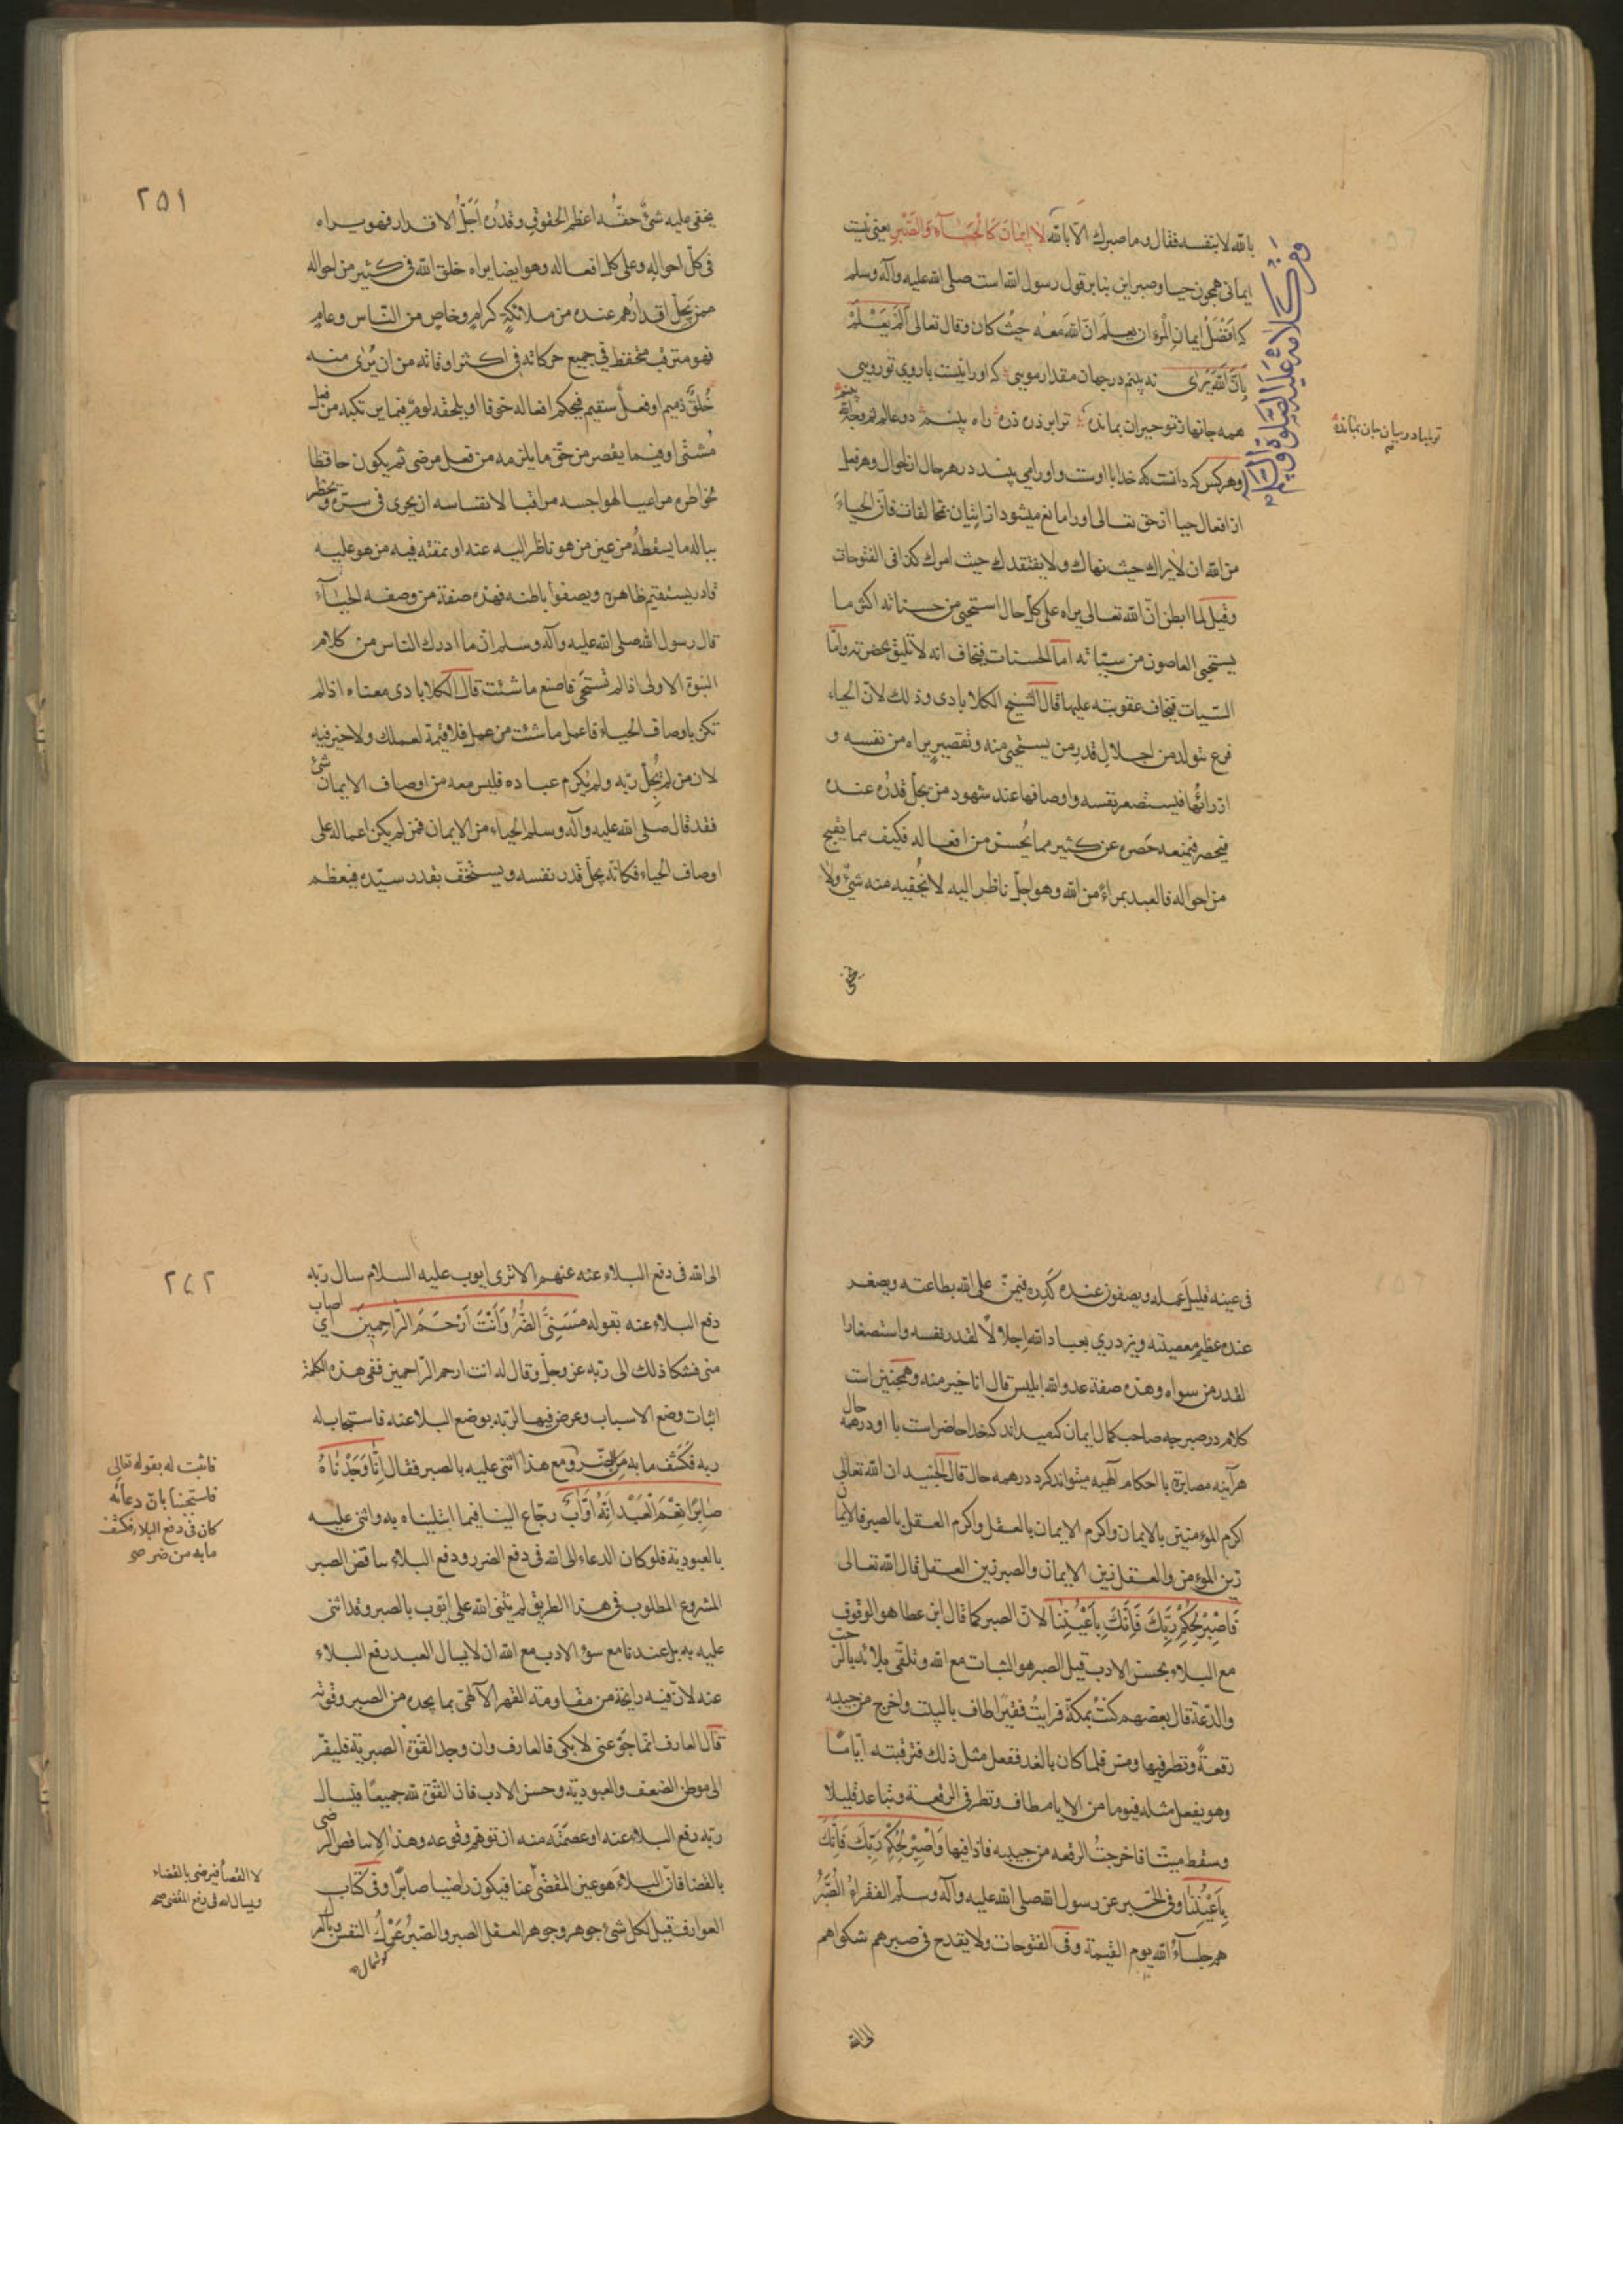 بالله لا بنفسه فقال وما صبرك الا بالله لا إيمان كالحياء والصبر يعنی نیست
ایمانی همچون حیا و صبر این بنابر قول رسول الله است صلی الله علیه وآله وسلم
که افضل ایمان المرء ان یعلم ان الله معه حیث کان وقال تعالی الم یعلم
بان الله یری نه بینم در جهان مقدار مویی که او را نیست با روی تو رویی
همه جانها ز تو حیران بمانده ترا بر ذره ذره راه بینم دو عالم ثم وجه الله بینم
وهر کس که دانست که خدا با اوست واو را می بیند در هر حال از احوال وهر فعل
از افعال حیا از حق تعالی او را مانع میشود از اتیان مخالفات فان الحیاء
من الله ان لا یراك حیث نهاك ولا یفتقدك حیث امرك كذا فی الفتوحات
وقیل لما ابطن ان الله تعالی یراه علی كل حال استحیی من حسناته اكثر ما
یستحیی العاصون من سیئاته اما الحسنات فیخاف انه لا تلیق بحضرته واما
السیئات فیخاف عقوبته علیها قال الشیخ الكلابادی وذلك لان الحیاء
فرع یتولد من اجلال قدر من یستحیی منه وتقصیر یراه من نفسه و
ازرائها فیستصغر نفسه واوصافها عند شهود من یجل قدره عنده
فیحصر فیمنعه حصره عن كثیر مما یحسن من افعاله فكیف مما یقبح
من احواله فالعبد بمرأى من الله وهو اجل ناظر الیه لا یخفیه منه شئ ولا
یخفی
ومن كلامه علیه الصلوة والسلام
٢٥١
یخفی علیه شئ حقه اعظم الحقوق وقدره اجل الاقدار فهو یراه
فی كل احواله وعلی كل افعاله وهو ایضا یراه خلق الله فی كثیر من احواله
ممن یجل اقدارهم عنده من ملائكة كرام وخاص من الناس وعام
فهو مترقب متحفظ فی جمیع حركاته فی اكثر اوقاته من ان یری منه
خلق ذمیم او فعل سقیم فیحكم افعاله خوفا او یلحقه لوم فیما یرتكبه من فعل
مشنی او فیما یقصر من حق ما یلزمه من فعل مرضی ثم یكون حافظا
لخواطره مراعیا لهواجسه مراقبا لانفساسه ان یجری فی سره ویخطر
بباله ما یسقطه من عین من هو ناظر الیه عنه او یمقته فیه من هو علیه
قادر یستقیم ظاهره ویصفوا باطنه فهذه صفة من وصفه الحیاء
قال رسول الله صلی الله علیه وآله وسلم ان ما ادرك الناس من كلام
النبوة الاولی اذا لم تستحی فاصنع ما شئت قال الكلابادی معناه اذا لم
تكن باوصاف الحیاء فاعمل ما شئت من عمل فلا قیمة لعملك ولا خیر فیه
لان من لم یجل ربه ولم یكرم عباده فلیس معه من اوصاف الایمان شئ
فقد قال صلی الله علیه وآله وسلم الحیاء من الایمان فمن لم یكن اعماله علی
اوصاف الحیاء فكانه یجل قدر نفسه ویستخف بقدر سیده فیعظم
فی عینه قلیل عمله ویصفون عنده كدره فیمن علی الله بطاعته ویصغر
عنده عظیم معصیته ویزدری بعباد الله اجلالا لقدر نفسه واستصغارا
لقدر من سواه وهذه صفة عدو الله ابلیس قال انا خیر منه وهمچنین است
کلام در صبر چه صاحب کمال ایمان که میداند که خدا حاضر است با او در همه حال
هر آینه مصابرة با احکام آلهیه میتواند کرد در همه حال قال الجنید ان الله تعالی
اكرم المؤمنین بالایمان واكرم الایمان بالعقل واكرم العقل بالصبر فالایمان
زین المؤمن والعقل زین الایمان والصبر زین العقل قال الله تعالی
فاصبر لحكم ربك فانك باعیننا لان الصبر كما قال ابن عطا هو الوقوف
مع البلاء بحسن الادب قیل الصبر هو الثبات مع الله وتلقی بلائه بالرحب
والدعة قال بعضهم كنت بمكة فرایت فقیرا طاف بالبیت واخرج من جیبه
رقعة ونظر فیها ومر فلما كان بالغد ففعل مثل ذلك فترقبته ایاما
وهو یفعل مثله فیوما من الایام طاف ونظر فی الرقعة وتباعد قلیلا
وسقط میتا فاخرجت الرقعه من جیبه فاذا فیها واصبر لحكم ربك فانك
باعیننا وفی الخبر عن رسول الله صلی الله علیه وآله وسلم الفقراء الصبر
هم جلساء الله یوم القیمة وفی الفتوحات ولا یقدح فی صبرهم شكواهم
الی الله
٢٥٢
الی الله فی دفع البلاء عنه عنهم الا تری ایوب علیه السلام سال ربه
دفع البلاء عنه بقوله مسنی الضر وانت ارحم الراحمین ای اصاب
منی فشكا ذلك الی ربه عز وجل وقال له انت ارحم الراحمین ففی هذه الكلمة
اثبات وضع الاسباب وعرض فیها لربه بوضع البلا عنه فاستجاب له
ربه فكشف ما به من الضر ومع هذا اثنی علیه بالصبر فقال انا وجدناه
صابرا نعم العبد انه اواب رجاع الینا فیما ابتلیناه به واثنی علیه
بالعبودیة فلو كان الدعاء الی الله فی دفع الضرر ودفع البلاء یناقض الصبر
المشروع المطلوب فی هذا الطریق لم یثنی الله علی ایوب بالصبر وقد اثنی
علیه به بل عندنا مع سوء الادب مع الله ان لا یسال العبد رفع البلاء
عنه لان فیه رایحة من مقاومة القهر الآلهی بما یجده من الصبر وقوته
قال العارف انما جوعنی لابكی فالعارف وان وجد القوة الصبریة فلیفر
الی موطن الضعف والعبودیة وحسن الادب فان القوة لله جمیعا فیسال
ربه رفع البلاء عنه او عصمته منه ان توهم وقوعه وهذا لا یناقض الرضی
بالقضا فان البلاء هو عین المقضی عنا فیكون راضیا صابرا وفی كتاب
العوارف قیل لكل شئ جوهر وجوهر العقل الصبر والصبر عرك النفس
فاثبت له بقوله تعالی
فاستجبنا بان دعائه
كان فی دفع البلاء فكشف
ما به من ضر صح
لا القضا فیرضی بالقضاء
ویسال الله فی رفع المقضی صح